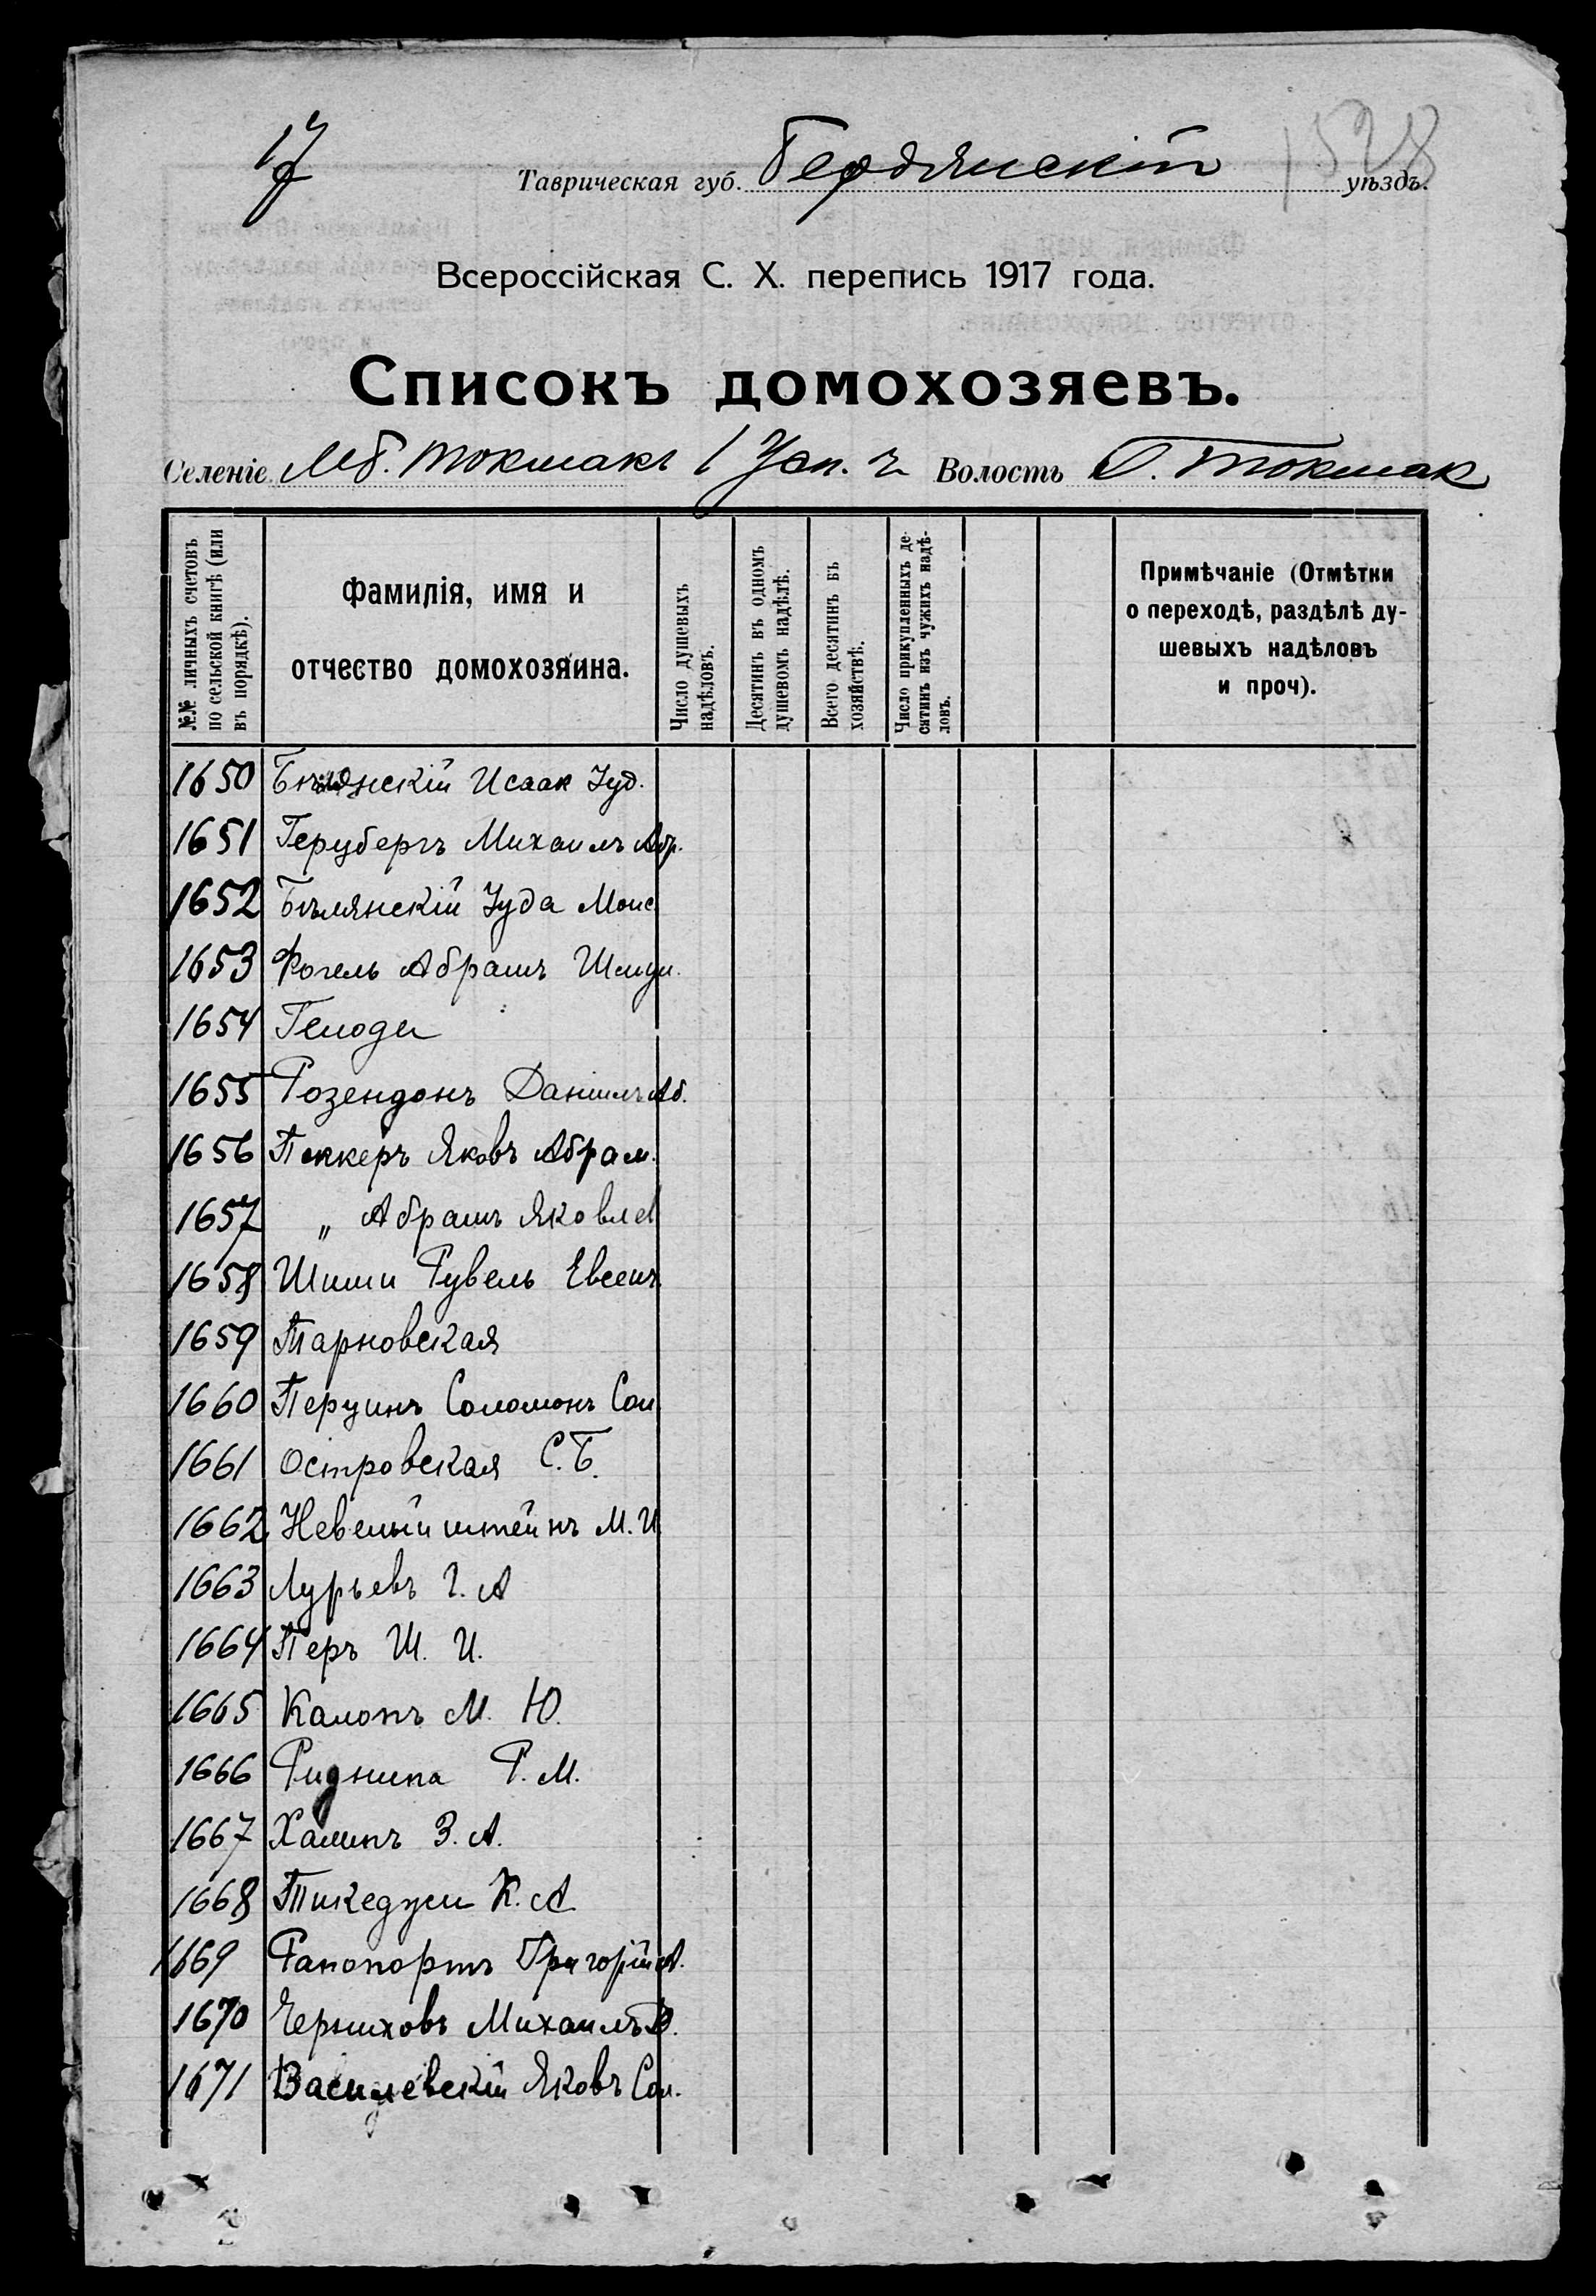 17
1528
Таврическая губ. Бердянскій уѣздъ.
Всероссійская С. Х. перепись 1917 года.
Списокъ домохозяевъ.
Селеніе Мб. Токмакъ 1 Уап. ч Волость Б. Токмак
№№ личныхъ счетовъ по сельской книгѣ (или въ порядкѣ).
Фамилія, имя и
отчество домохозяина.
Число душевыхъ надѣловъ.
Десятинъ въ одномъ душевомъ надѣлѣ.
Всего десятинъ въ хозяйствѣ.
Число прикупленныхъ десятинъ изъ чужихъ надѣловъ.
Примѣчаніе (Отмѣтки
о переходѣ, раздѣлѣ ду-
шевыхъ надѣловъ
и проч).
1650 Исаак Іуд.
1651 Геруберъ Михаилъ Абр.
1652 Бѣлянскій Іуда Моис
1653 Фогель Абрамъ
1654
1655 Розендонъ Даніилъ Аб.
1656 Пеккеръ Яковъ Абрам.
1657 „ Абрамъ Яковлев
1658 Рувель Евсеич
1659 Тарновская
1660 Перцинъ Соломонъ Сол
1661 Островская С. Б.
1662 М. И
1663 Лурьевъ Г. А
1664 Перъ Ш. И.
1665 М. Ю.
1666 Р. М.
1667 З. А.
1668 К. А
1669 Рапопортъ Григорій А.
1670 Черниховъ Михаилъ
1671 Василевскій Яковъ Сол.